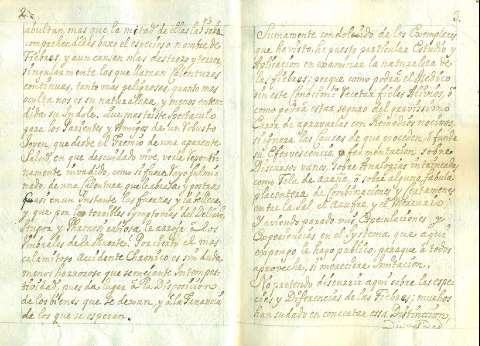 2.
abultan, mas que la mitad de ellas las
comprehendidas baxo el especioso nombre de
Fiebres, y aun causan mas destrozo, y
singularmente las que llaman Calenturas
continuas, tanto mas peligrosas, quanto mas
oculta nos es su naturaleza, y menos enten
dida su Indole. Que mas triste Spectaculo
para los Parientes y Amigos de un Robusto
Joven, que desde el Premio de una aparente
Salud, en que descuydado vive, verse
namente invadido, como si fuera
nado, de una Calentura que la abate, y postra
en un Instante las fuerzas y la
y que por los terribles Symptomas del Delirio
Stupor y rabiosa, le
Umbrales de la Muerte. Por cierto el mas
calamitoso Accidente Chronico es sin duda
menos horroroso que semejante Intempes
tividad, pues da lugar a la Disposicion
de los bienes que se dexan, y a la
de los que se esperan.
3.
Sumamente condolido de los Exemplares
que he visto, he puesto particular Estudio y
Aplicacion en examinar la naturaleza de
las fiebres; porque como podrá el Medico
sin este fundamento
como podrá estar seguro del gravissimo
de agravarla con Remedios nocivos,
si ignora las Causas de que proceden, o funda
su Efervescencia, o fermentacion sobre
Discursos vanos, sobre Analogias
como Tela de araña, o sobre alguna fabula
placentera de Combinaciones y Certamenes
entre la Sal, el Azufre y el Mercurio.
Y haviendo parado mis Speculaciones, y
Experiencias en el Systema que aqui
expongo, le hago publico, paraque a todos
aproveche, si mereciere Imitacion.
No pretendo discurrir aqui sobre las espe
cies, y Diferencias de las Fiebres; muchos
han sudado en concertar esta Distincion,